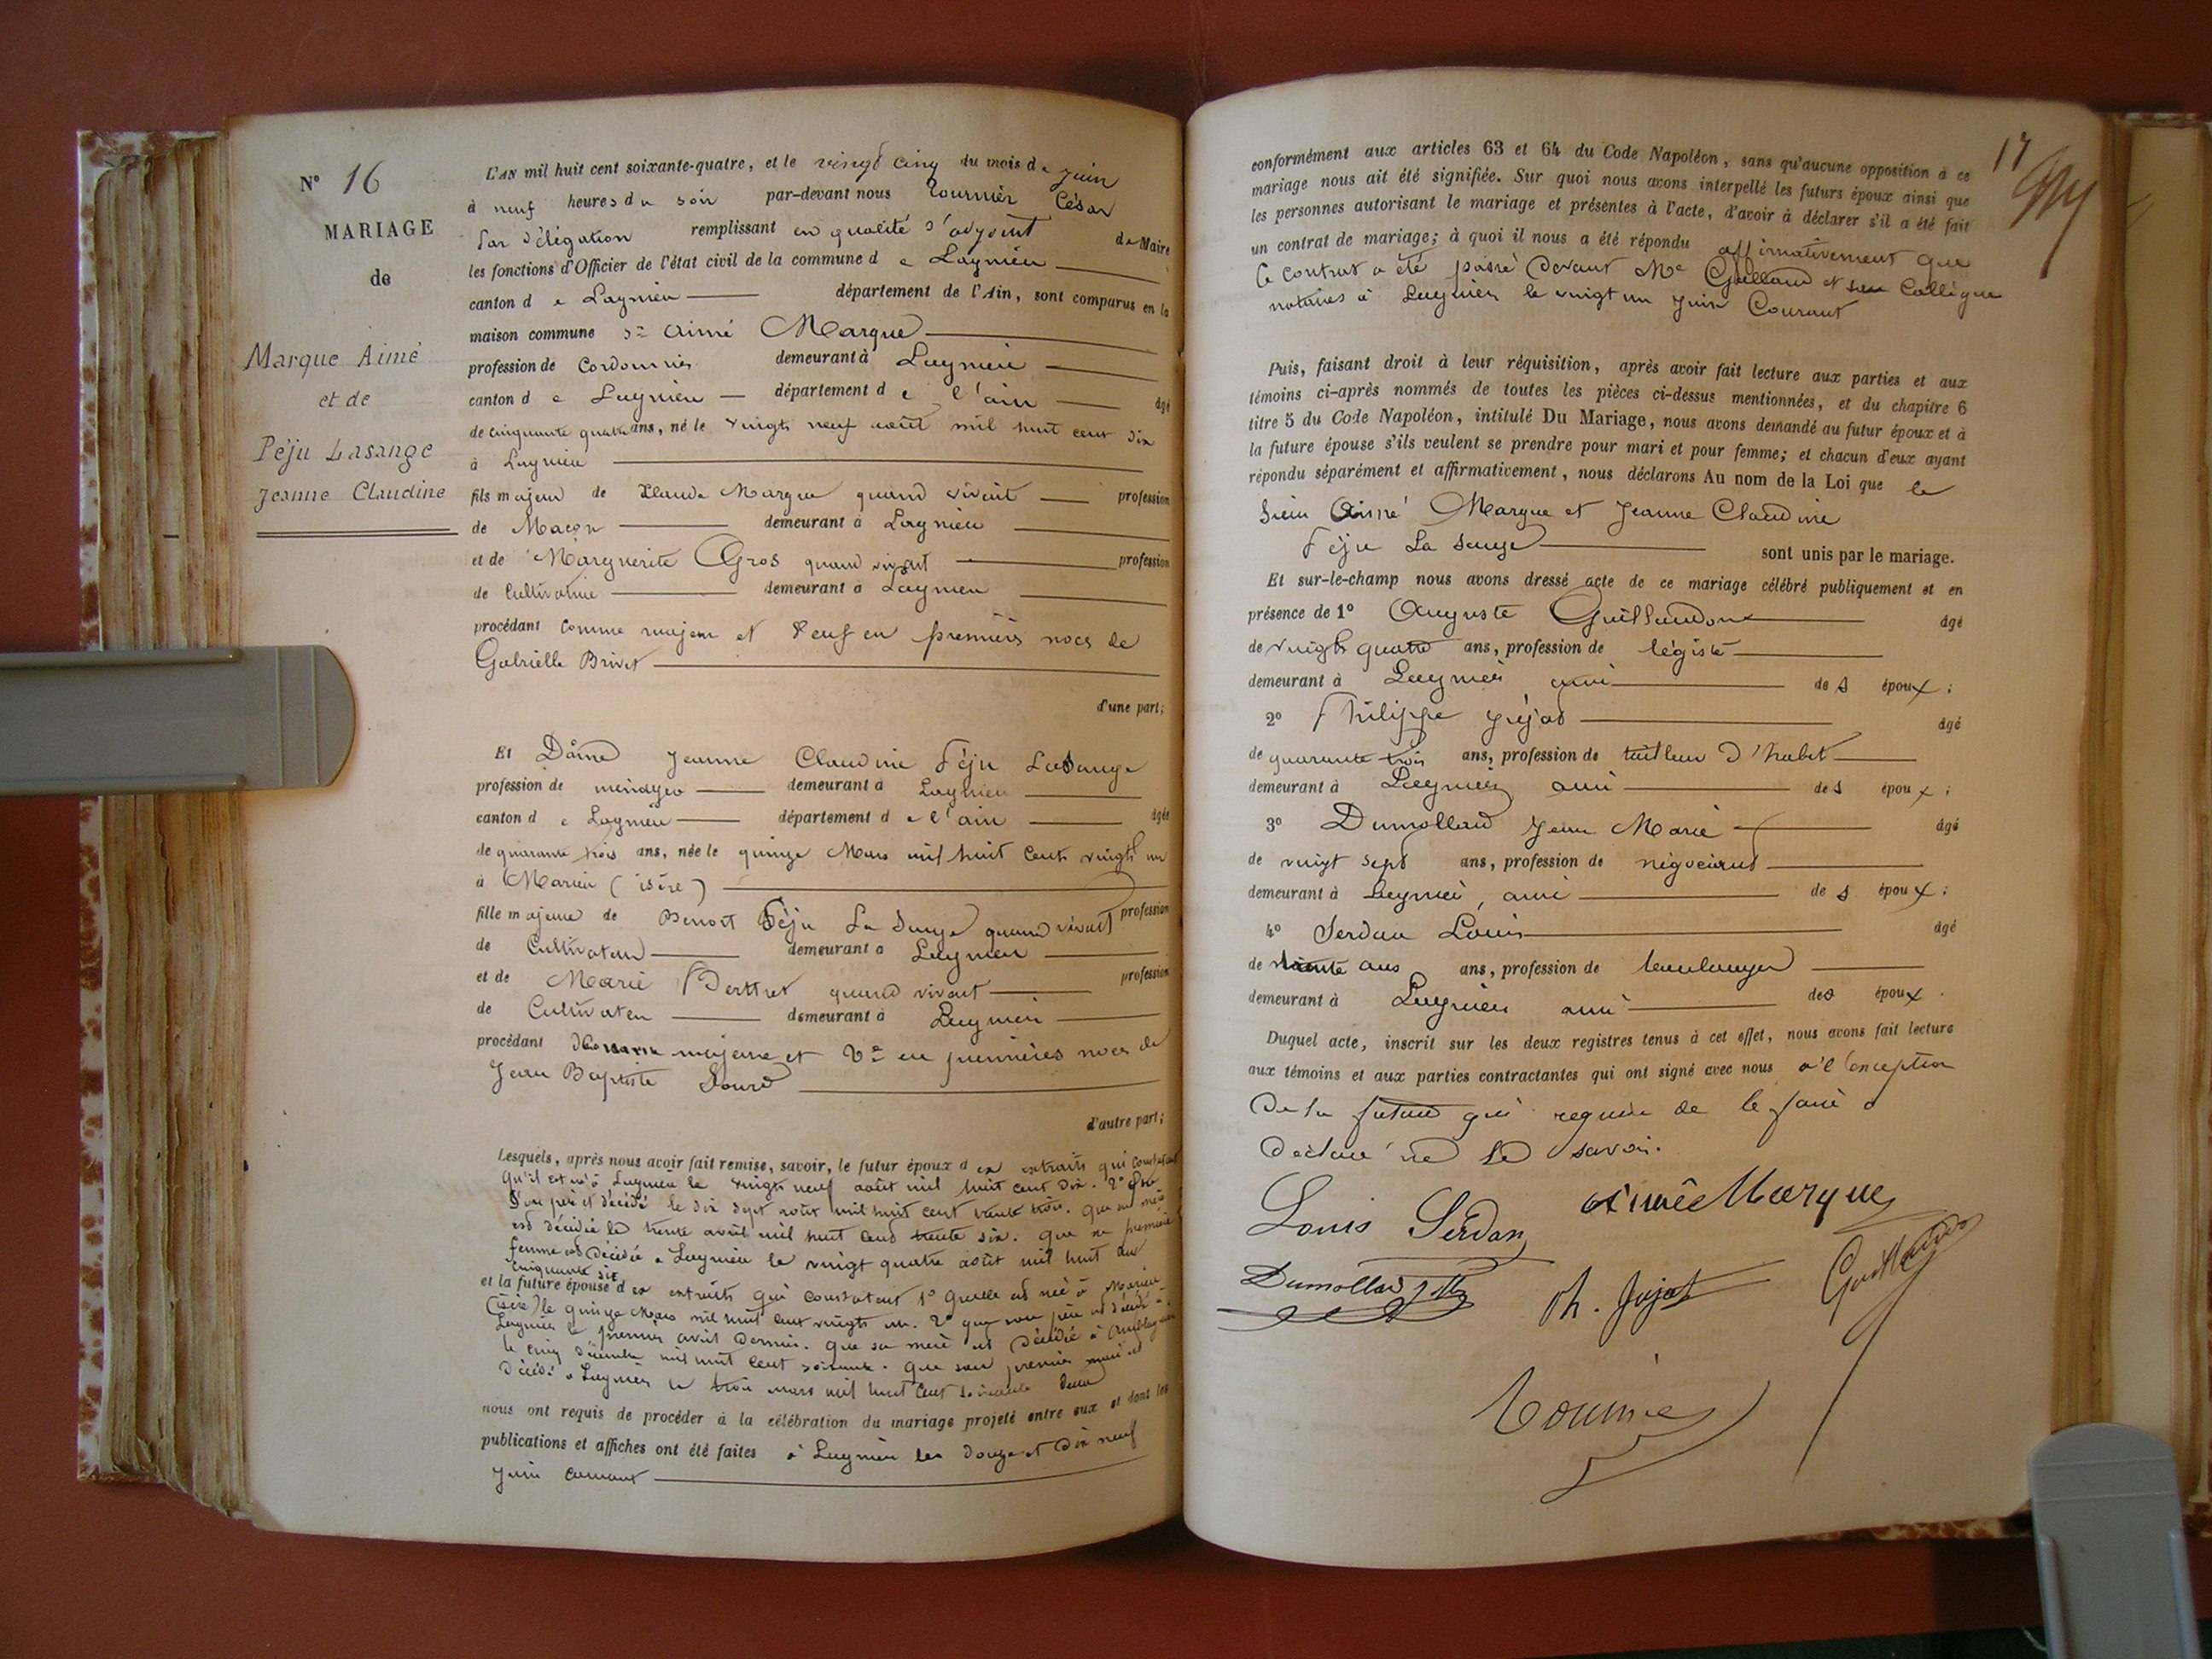 N° 16
MARIAGE
de
Marque Aimé
et de
Péju Lasange
Jeanne Claudine
L'AN mil huit cent soixante-quatre, et le vingt cinq du mois de juin
à neuf heures du soir par-devant nous Tournier César
par délégation remplissant en qualité d'adjoint de Maire
les fonctions d'Officier de l'état civil de la commune de Lagnieu
canton de Lagnieu département de l'Ain, sont comparus en la
maison commune Sr Aimé Marque
profession de Cordonnier demeurant à Lagnieu
canton de Lagnieu département de l'ain âgé
de cinquante quatre ans, né le vingt neuf août mil huit cent dix
à Lagnieu
fils majeur de Claude Marque quand vivait profession
de Maçon demeurant à Lagnieu
et de Marguerite Gros quand vivait profession
de Cultivatrice demeurant à Lagnieu
procédant comme majeur et Veuf en premières noces de
Gabrielle Brivet
d'une part;
Et Dame Jeanne Claudine Péju Lasange
profession de ménagère demeurant à Lagnieu
canton de Lagnieu département de l'ain âgée
de quarante trois ans, née le quinze Mars mil huit cent vingt un
à Marieu (isère)
fille majeure de Benoit Péju La Sange quand vivait profession
de Cultivateur demeurant à Lagnieu
et de Marie Berttret quand vivait profession
de Cultivateur demeurant à Lagnieu
procédant comme majeure et Ve en premières noces de
Jean Baptiste Sourd
d'autre part;
Lesquels, après nous avoir fait remise, savoir, le futur époux d es extraits qui constatent
Qu'il est né à Lagnieu le vingt neuf août mil huit cent dix. 2° Que
son père est décédé le dix sept août mil huit cent trente trois. que sa mère
est décédée le trente avril mil huit cent trente six. que sa première
femme est décédée à Lagnieu le vingt quatre août mil huit cent
cinquante six
et la future épouse d es extraits qui constatent 1° qu'elle est née à Marieu
(isère) le quinze Mars mil huit cent vingt un. 2° que son père est décédé à
Lagnieu le premier avril dernier. que sa mère est décédée à
le cinq décembre mil huit cent soixante. que son premier mari est
décédé à Lagnieu le trois mars mil huit cent soixante deux
nous ont requis de procéder à la célébration du mariage projeté entre eux et dont les
publications et affiches ont été faites à Lagnieu les douze et dix neuf
juin courant
17
conformément aux articles 63 et 64 du Code Napoléon, sans qu'aucune opposition à ce
mariage nous ait été signifiée. Sur quoi nous avons interpellé les futurs époux ainsi que
les personnes autorisant le mariage et présentes à l'acte, d'avoir à déclarer s'il a été fait
un contrat de mariage; à quoi il nous a été répondu affirmativement que
le contrat a été passé devant Me Guilland et son Collègue
notaires à Lagnieu le vingt un juin Courant
Puis, faisant droit à leur réquisition, après avoir fait lecture aux parties et aux
témoins ci-après nommés de toutes les pièces ci-dessus mentionnées, et du chapitre 6
titre 5 du Code Napoléon, intitulé Du Mariage, nous avons demandé au futur époux et à
la future épouse s'ils veulent se prendre pour mari et pour femme; et chacun d'eux ayant
répondu séparément et affirmativement, nous déclarons Au nom de la Loi que le
Sieur Aimé Marque et Jeanne Claudine
Péju La Sange sont unis par le mariage.
Et sur-le-champ nous avons dressé acte de ce mariage célébré publiquement et en
présence de 1° Auguste Guillaudon âgé
de vingt quatre ans, profession de légiste
demeurant à Lagnieu ami des époux;
2° Philippe Jujat âgé
de quarante trois ans, profession de tailleur d'habit
demeurant à Lagnieu ami des époux;
3° Dumollard Jean Marie âgé
de vingt sept ans, profession de négociant
demeurant à Lagnieu, ami des époux;
4° Serdan Louis âgé
de trente ans ans, profession de boulanger
demeurant à Lagnieu ami des époux.
Duquel acte, inscrit sur les deux registres tenus à cet effet, nous avons fait lecture
aux témoins et aux parties contractantes qui ont signé avec nous à l'exception
De la future qui requise de le faire a
déclaré ne le savoir.
Louis Serdan Aimée Marque
Dumollard Ph. Jujat
Tournier